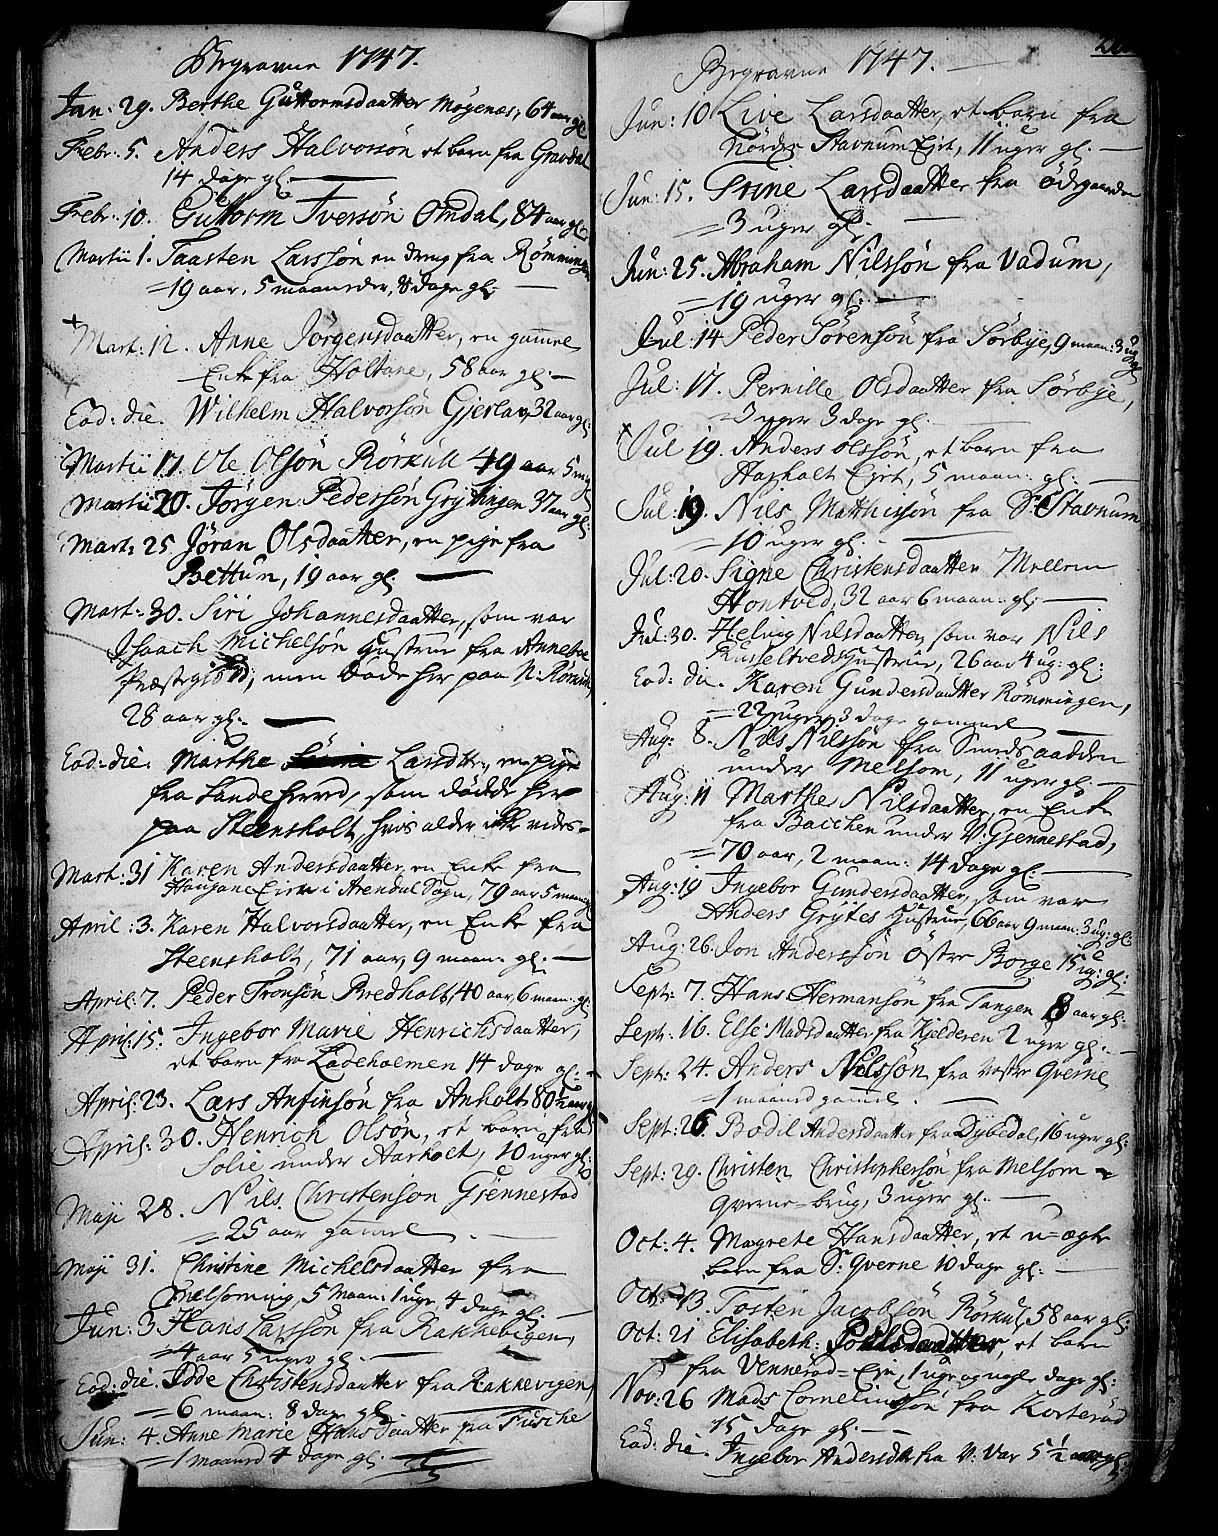 Begravne 1747.
Jan: 29. Berthe Guttormsdaatter Møgenæs, 64 aar gl:
Febr: 5. Anders Halvorsön et barn fra Gravdal
14 dage gl:
Febr: 10. Guttorm Iversön Omdal, 84 aar gl:
Martii 1. Taasten Larssön en dreng fra Römminge
19 aar, 5 maaneder, 8 dage gl:
Mart: 12. Anne Jörgensdaatter, en gamel
Enke fra Holtane, 58 aar gl:
Eod: die. Wilhelm Halvorsön Gjerlar, 32 aar gl:
Martii 17. Ole Olsön Rörkull 49 aar 5
Martii 20. Jörgen Pedersön Gryttingen 37 aar gl:
Mart: 25 Jöran Olsdaatter, en pige fra
Bettum, 19 aar gl:
Mart: 30. Siri Johannesdaatter, som var
Jsaach Michelsön Hustrue fra Annebue
Præstegield, men döde her paa N:
28 aar gl:
Eod: die. Marthe Larsdtr, en pige
fra Sandeherred, som dödde her
paa Steensholt, hvis alder ikke vides
Mart: 31 Karen Andersdaatter, en Enke fra
Haugane Eie i Arendal Sogn, 79 aar 5 maan:
April: 3. Karen Halvorsdaatter, en Enke fra
Steensholt, 71 aar, 9 maan: gl:
April: 7. Peder Tronsön Bredholt, 40 aar 6 maan: gl:
April: 15. Ingebor Marie Henrichsdaatter,
et barn fra Ladeholmen 14 dage gl:
April: 23. Lars Anfinsön fra Anholt 80 1/2 aar gl:
April: 30. Henrich Olsön, et barn fra
Solie under Aarholt, 10 uger gl:
Maji 28. Nils Christensön Gjennestad
25 aar gamel
Maji 31. Christine Michelsdaatter fra
Melsomvig, 5 maan: 1 uge, 4 dage gl:
Jun: 3 Hans Larssön fra Rakkevigen,
4 aar 5 uger gl:
Eod: die. Idde Christensdaatter fra Rakkevigen,
6 maan: 8 dage gl:
Jun: 4. Anne Marie Hansdaatter fra
1 maaned 4 dage gl:
Begravne 1747.
Jun: 10 Live Larsdaatter, et barn fra
Nördre Stavnum Eje, 11 uger gl:
Jun: 15. Trine Larsdaatter fra ödegaarden
3 uger gl:
Jun: 25. Abraham Nilssön fra Vadum,
19 uger gl:
Jul: 14 Peder Sörensön fra Sörbye, 9 maan: 3 ug:
Jul: 17. Pernille Olsdaatter fra Sörbye,
3 uger 3 dage gl:
Jul 19. Anders olssön, et barn fra
Hasholt Ejet, 5 maan: gl:
Jul: 19. Nils Matthissön fra S: Stavnum
10 uger gl:
Jul: 20. Signe Christensdaatter Mellem
Hontved, 32 aar 6 maan: gl:
Jul: 30. Helvig Nilsdaatter, som var Nils
Russeltveds Hustrue, 26 aar 4 ug: gl:
Eod: die. Karen Gundersdaatter Römmingen,
22 uger 3 dage gammel
Aug: 8. Nils Nilssön fra Smedsaadden
under Melsom, 11 uger gl:
Aug: 11 Marthe Nilsdaatter, en Enke
fra Bacchen under V: Gjennestad,
70 aar, 2 maan: 14 dage gl:
Aug: 19 Ingebor Gundersdaatter, som var
Anders Grytes Hustrue, 66 aar 9 maan: 3 ug: gl:
Aug: 26. Jon Anderssön Östre Borge 15 ug: gl:
Sept: 7. Hans Hermansön fra Tangen 8 aar gl:
Sept: 16. Else Madsdaatter fra Kjelderen 2 uger gl:
Sept: 24. Anders Nilssön fra Vestre Qverne
1 maaned gamel.
Sept: 26. Bodil Andersdaatter fra Dybedal, 16 uger gl:
Sept: 29. Christen Christophersön fra Melsom
Qverne-brug, 3 uger gl:
Oct: 4. Magrete Hansdaatter, et u-ægte
barn fra S: Qverne 10 dage gl:
Oct: 13. Tosten Jacobsön Rörkul, 58 aar gl:
Oct: 21 Elisabeth: Povelsdaatter, et barn
fra Vennerød-Eje, 1 uge og nogle dage gl:
Nov: 26 Mads Corneliussön fra Korterød
15 dage gl:
Eod: die. Ingebor Andersdtr fra V: Var 5 1/2 aar gl: